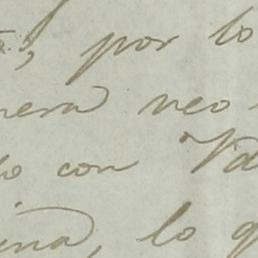 por lo
nera neo-
lo con Va
ina, lo q